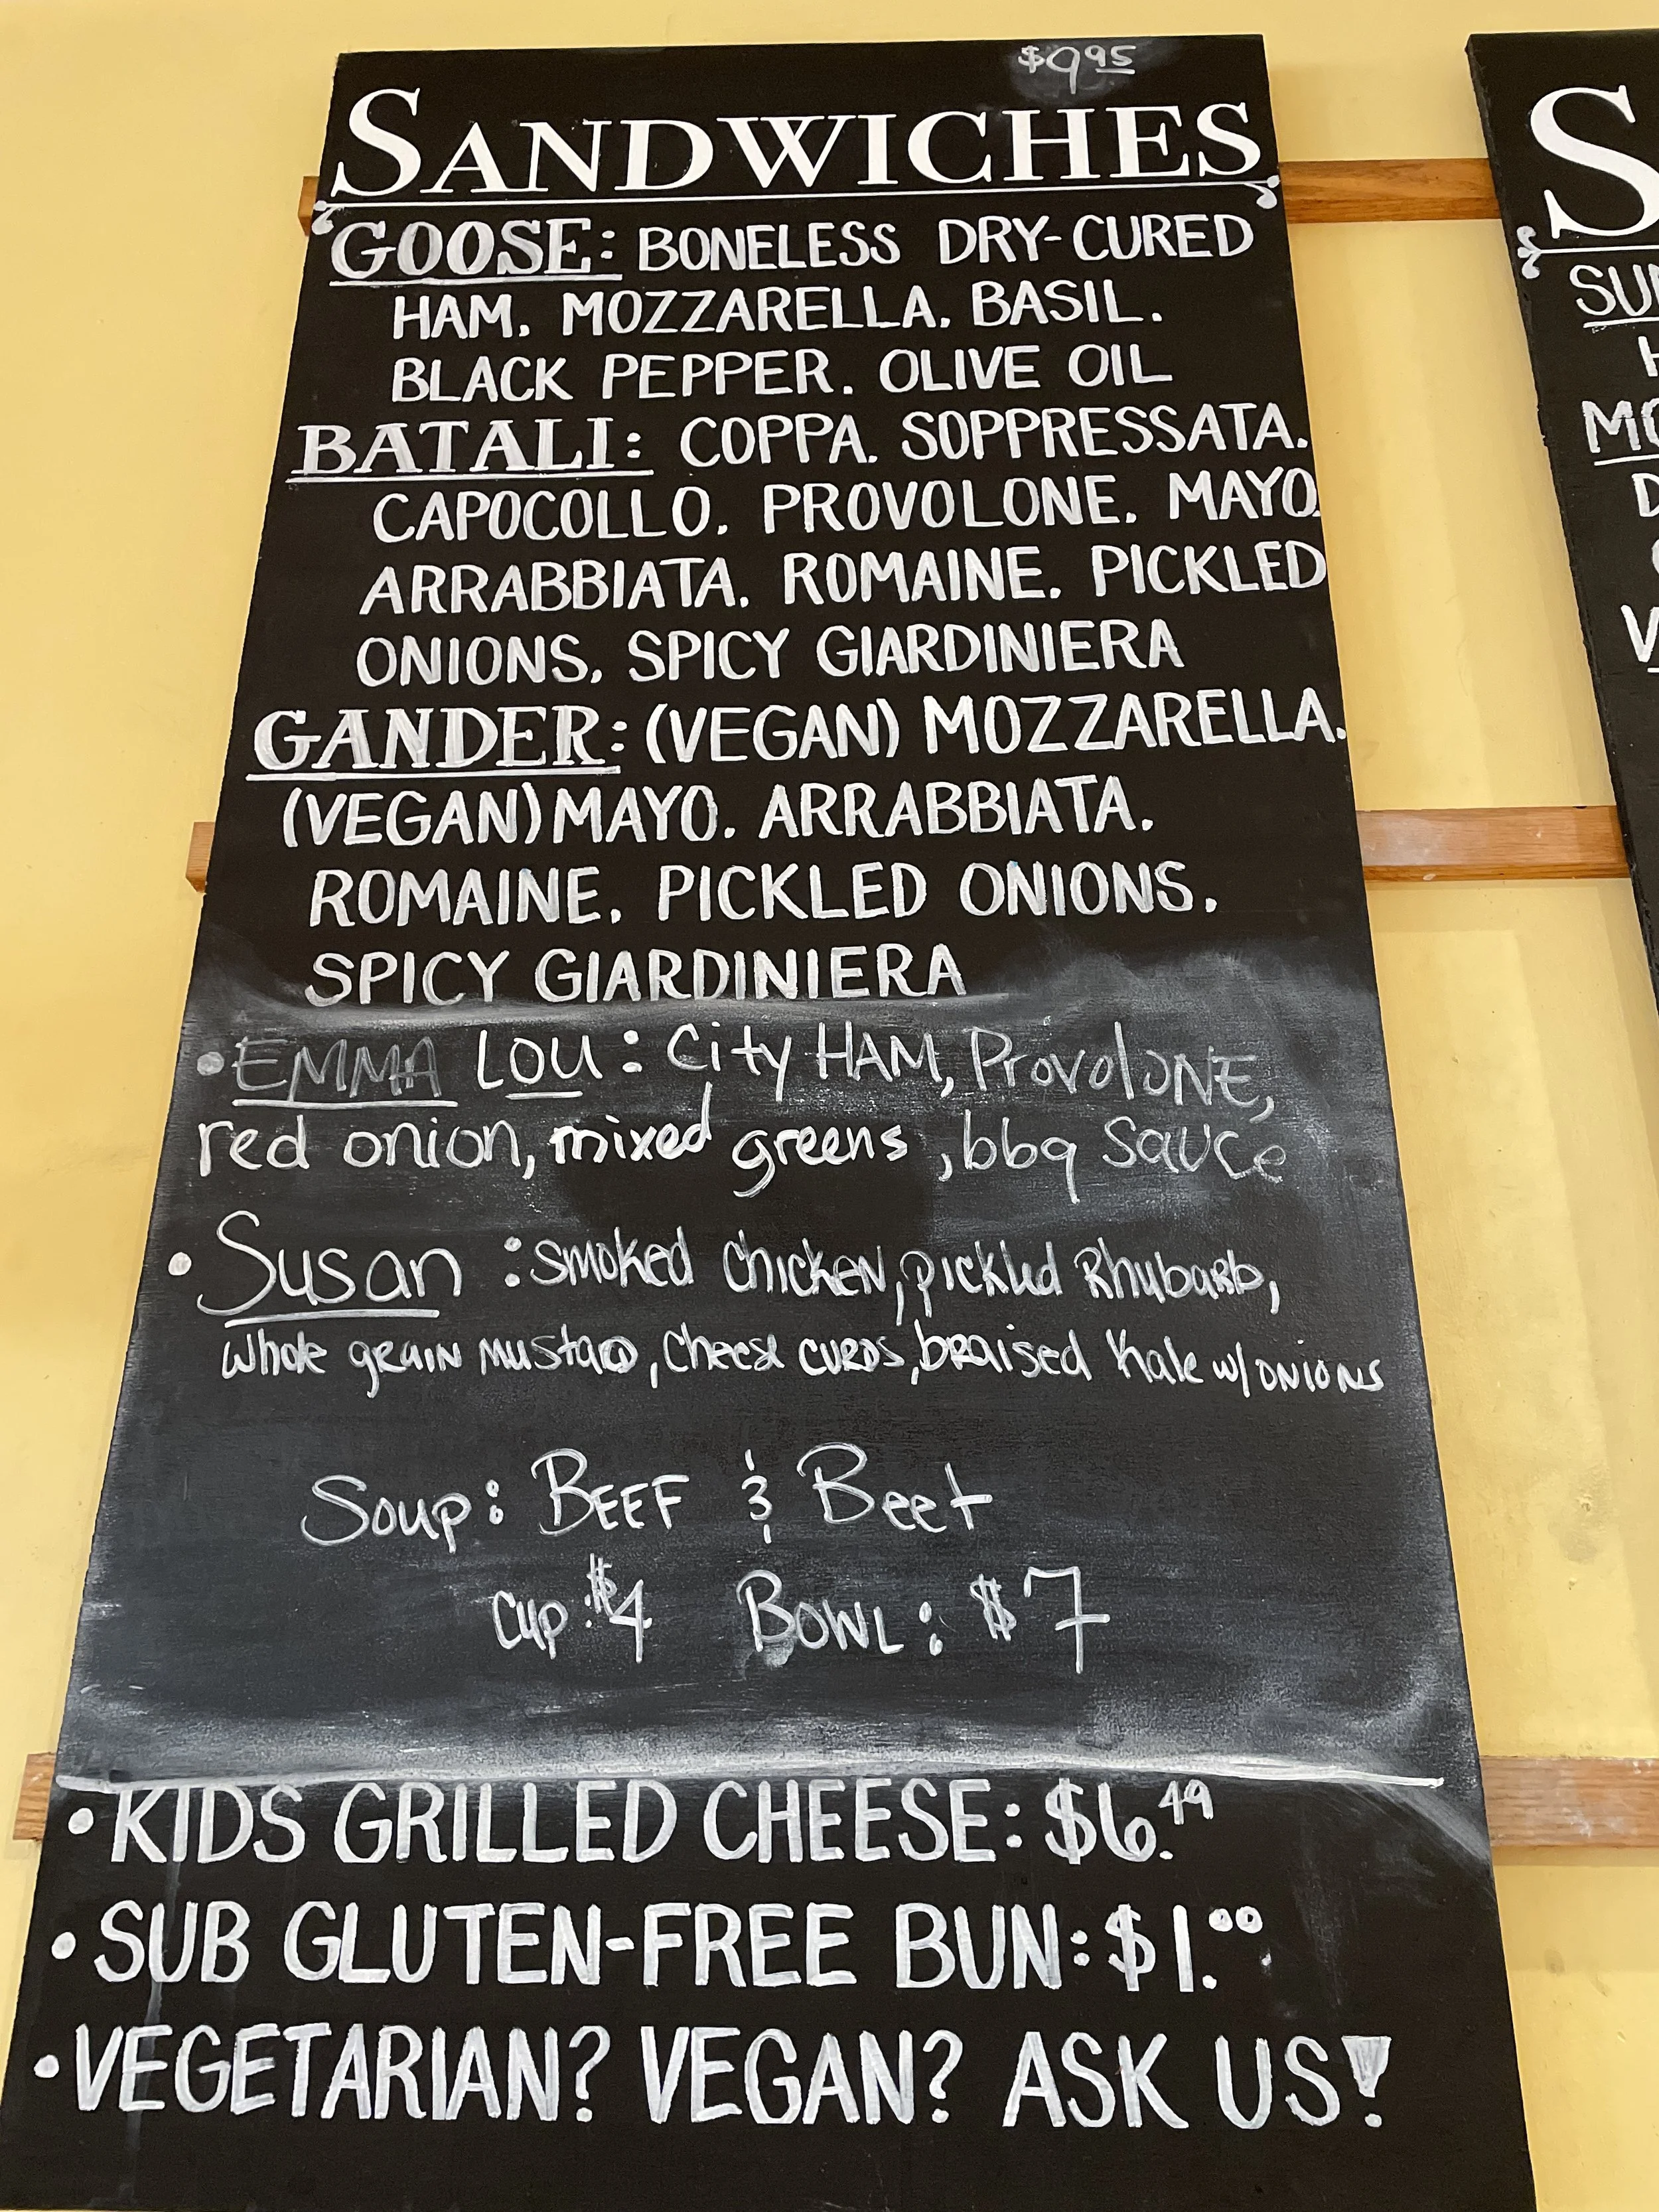 $9.95
SANDWICHES
GOOSE: BONELESS DRY-CURED
HAM. MOZZARELLA. BASIL.
BLACK PEPPER. OLIVE OIL
BATALI: COPPA. SOPPRESSATA.
CAPOCOLLO. PROVOLONE. MAYO.
ARRABBIATA. ROMAINE. PICKLED
ONIONS. SPICY GIARDINIERA
GANDER: (VEGAN) MOZZARELLA.
(VEGAN) MAYO. ARRABBIATA.
ROMAINE. PICKLED ONIONS.
SPICY GIARDINIERA
• EMMA LOU: City HAM, ProvolONE,
red onion, mixed greens, bbq sauce
• Susan: smoked chicken, pickled Rhubarb,
whole grain mustard, cheese curds, braised kale w/ onions
Soup: BEEF & Beet
Cup: $4 BOWL: $7
• KIDS GRILLED CHEESE: $6.49
• SUB GLUTEN-FREE BUN: $1.00
• VEGETARIAN? VEGAN? ASK US!